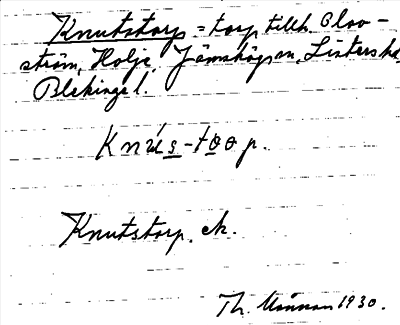 Knutstorp = torp tillh. Olov-
ström, Holje, Jämshögs sn, Listers hd
Blekinge l.
Knús-toop.
Knutstorp. ek.
Th. 1930.